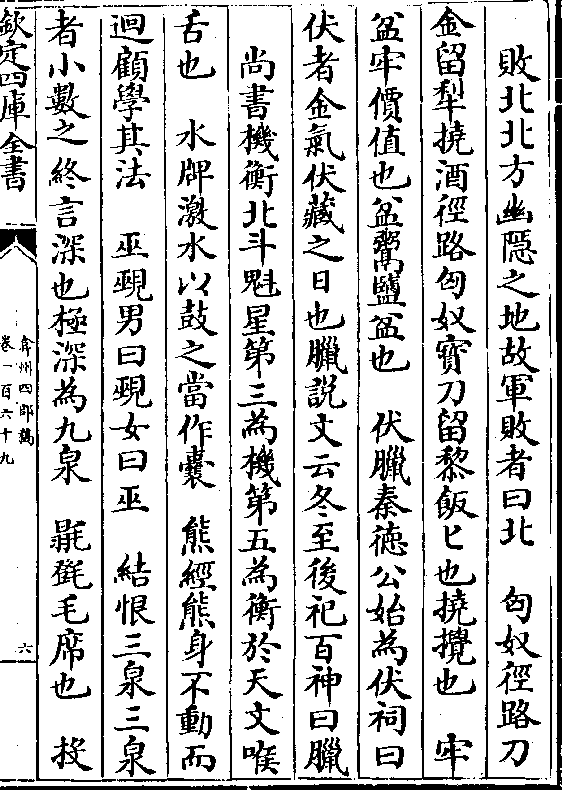 敗北北方幽隱之地故軍敗者曰北　匈奴徑路刀
金留犁撓酒徑路匈奴寶刀留黎飯匕也撓攪也　牢
盆牢價值也盆鬻鹽盆也　伏臘秦徳公始為伏祠曰
伏者金氣伏藏之日也臘説文云冬至後祀百神曰臘
尚書機衡北斗魁星第三為機第五為衡於天文喉
舌也　水牌激水以鼓之當作囊　熊經熊身不動而
迴顧學其法　巫覡男曰覡女曰巫　結恨三泉三泉
者小數之終言深也極深為九泉　㲮㲪毛席也　投
欽定四庫全書
弇州四部稿
卷一百六十九
六